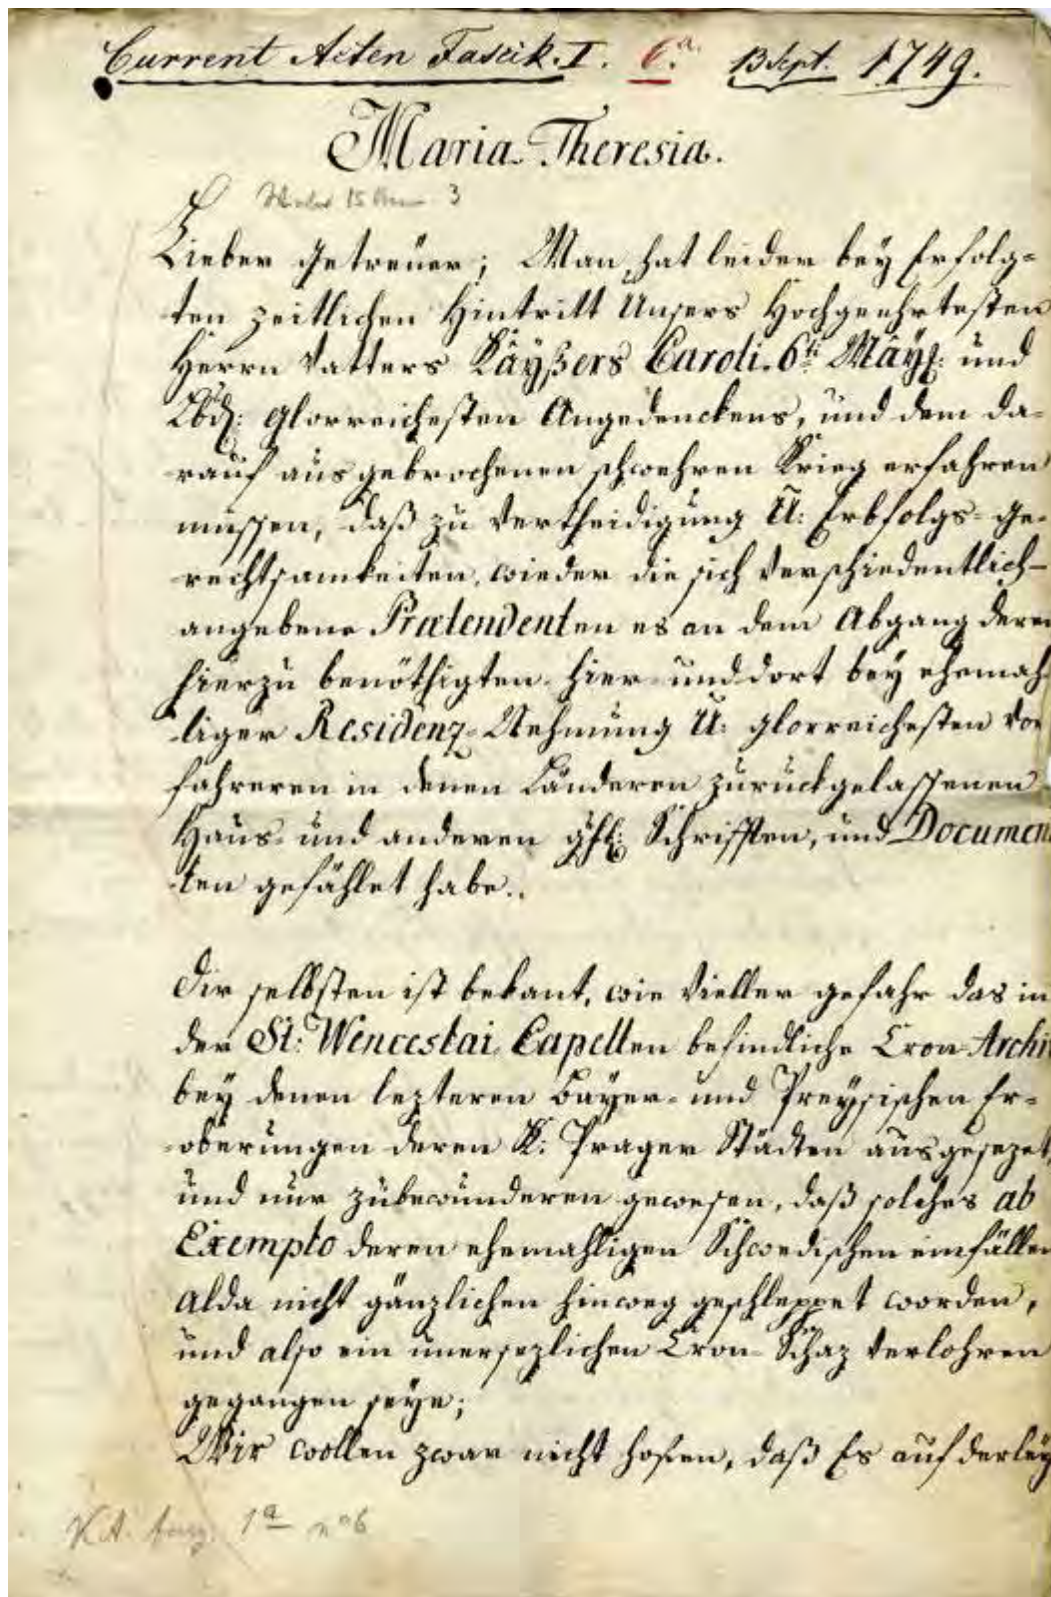 Current Acten Fascik. I. 6.a. 13 Sept. 1749.
Maria Theresia.
15 3
Lieber Getreüer; Man hat leider bey Erfolg=
ten zeitlichen Hintritt Unsers Hochgeehrtesten
Herrn Vatters Käyßers Caroli 6ti Mäyt: und
Lbd: Glorreichesten Angedenckens, und dem da=
rauf ausgebrochenen schwehren Krieg erfahren
müssen, daß zu Vertheidigung U: Erbfolgs=Ge=
rechtsamkeiten, wieder die sich Verschiedentlich=
angebene Prætendenten es an dem Abgang deren
hierzu benöthigten hier und dort bey ehemah=
liger Residenz=Nehmung U: glorreichesten Vor
fahreren in denen Länderen zurückgelassenen
Haus= und anderen Schrifften, und Documen
ten gefählet habe.
Dir selbsten ist bekant, wie Vieller gefahr das in
der St: Wenceslai Capellen befindliche Cron Archi
bey denen lezteren Bayer= und Preysischen Er=
oberungen deren K: Prager Städten ausgesezet,
und nur zubewunderen gewesen, daß solches ab
Exemplo deren ehemahligen Schwedischen einfällen
alda nicht gänzlichen hinweg geschleppet worden,
und also ein unersezlichen Cron=Schaz Verlohren
gegangen seye;
Wir wollen zwar nicht hofen, daß Es auf derley
K.A. 1a no 6